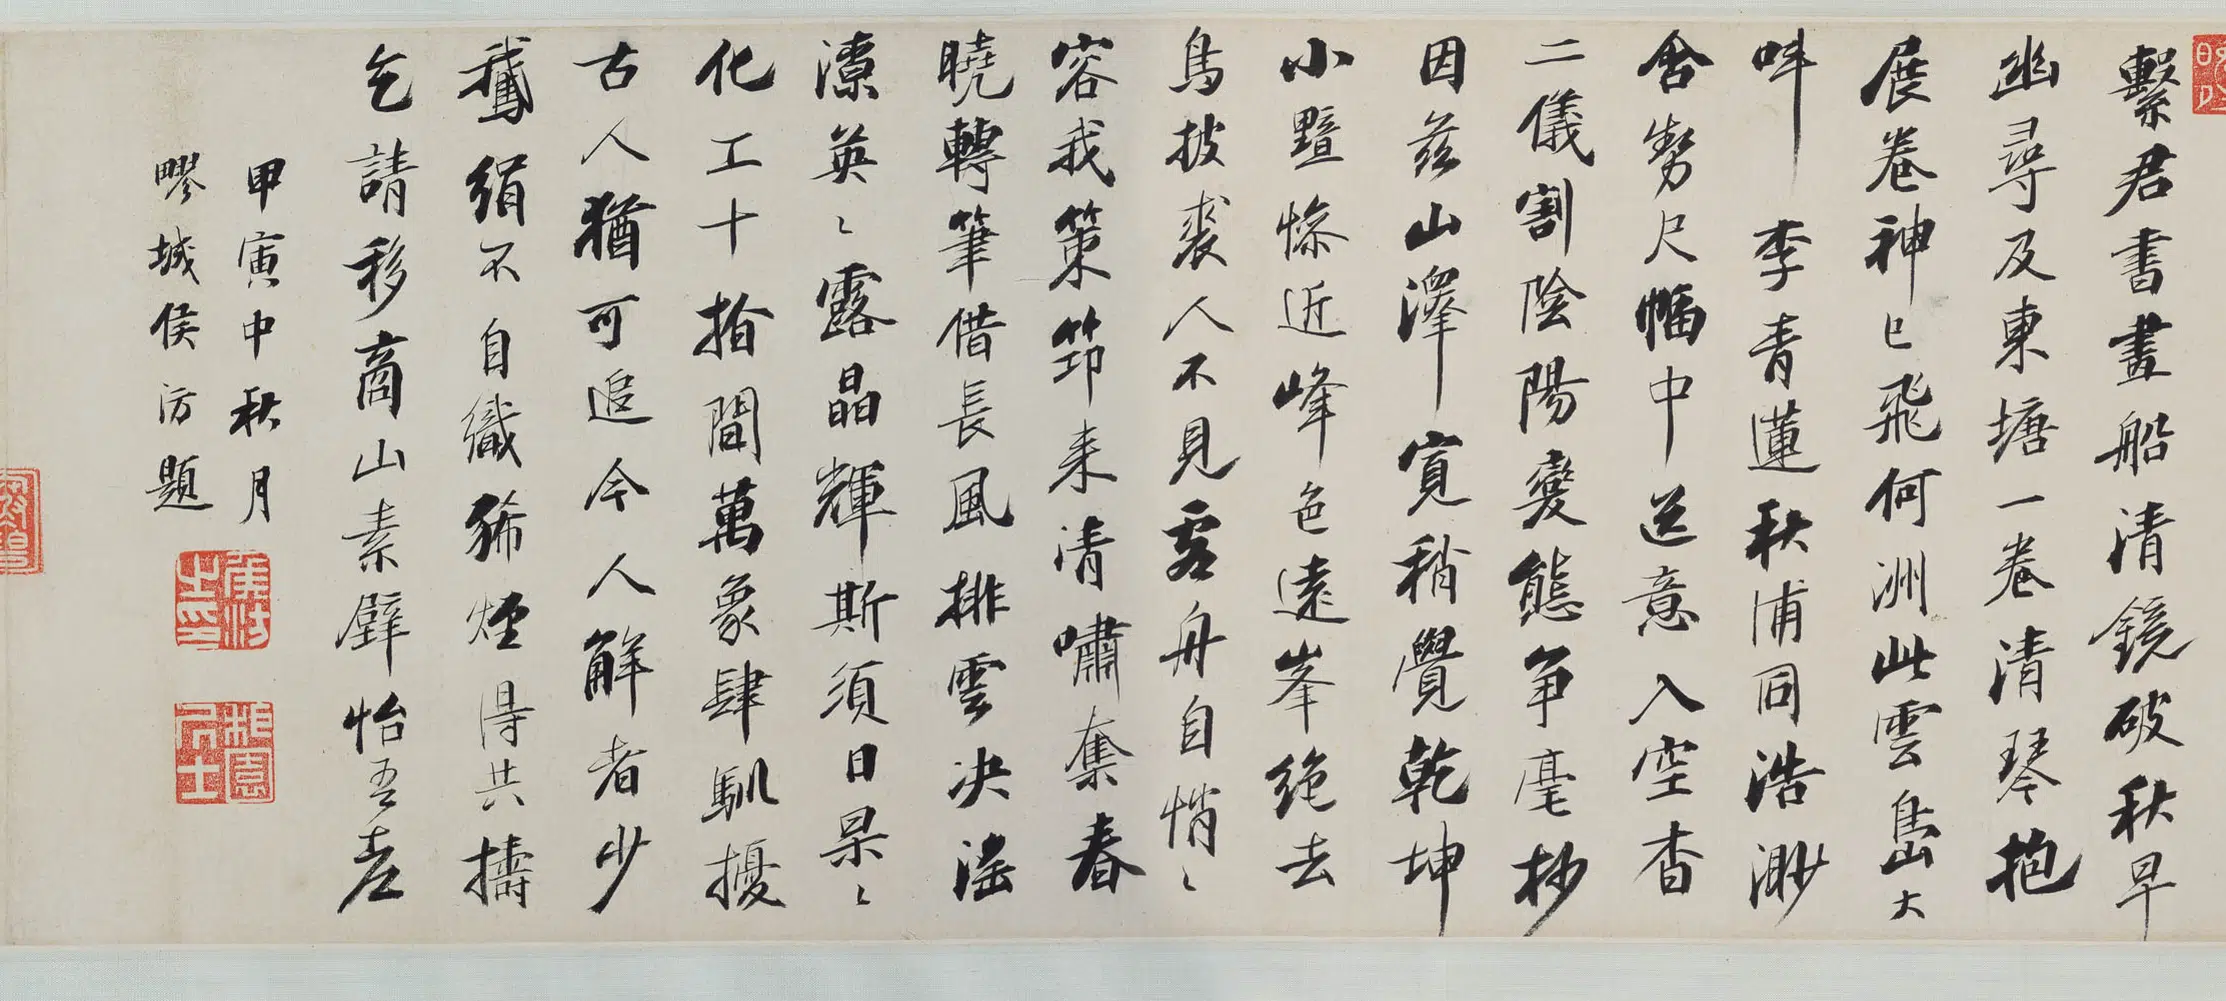 繫君書畫船清鏡破秋早
幽尋及東塘一卷清琴抱
展卷神已飛何洲此雲島大
呌李青蓮秋浦同浩渺
舍勢尺幅中送意入空杳
二儀割陰陽變態爭毫抄
因茲山澤寬稍覺乾坤
小黯慘近峰色遠峯絶去
鳥披裘人不見虛舟自悄〻
容我策筇来清嘯奪春
曉轉筆借長風排雲决滛
潦英〻露晶輝斯須日杲〻
化工十指間萬象肆馴擾
古人猶可追今人解者少
鵞絹不自織豨煙得共擣
乞請移商山素壁怡吾老
甲寅中秋月
疁城侯汸題
侯汸之印
居士